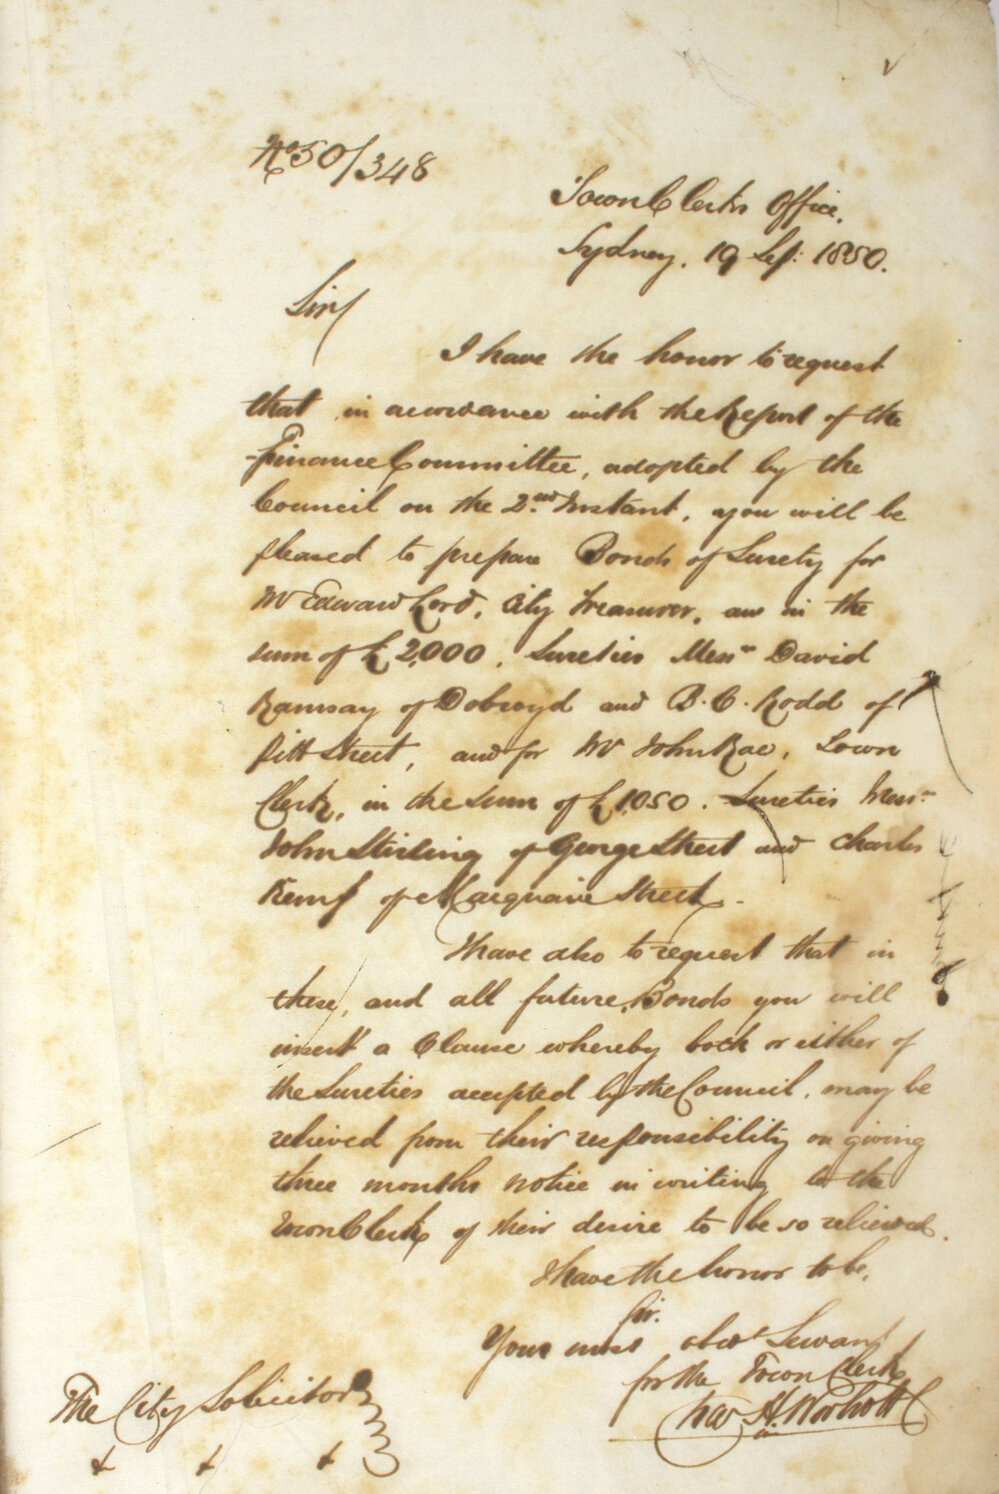 No 50/348
Town Clerks Office,
Sydney, 19 Sep: 1850.
Sir/
I have the honor to request
that in accordance with the Report of the
Finance Committee, adopted by the
Council on the 2nd Instant, you will be
pleased to prepare Bonds of Surety for
Mr Edward Lord, City Treasurer, one in the
sum of £2,000, Sureties Messrs David
Ramsay of Dobroyd and B. C. Rodd of
Pitt Street, and for Mr John Rae, Town
Clerk, in the sum of £1,050. Sureties Messrs
John Stirling of George Street and Charles
Kemp of Macquarie Street.
I have also to request that in
these, and all future, Bonds you will
insert a Clause whereby both or either of
the Sureties accepted by the Council, may be
relieved from their responsibility on giving
three months notice in writing to the
Town Clerk of their desire to be so relieved.
I have the honor to be,
Sir,
Your most obdt Servant
for the Town Clerk
The City Solicitor